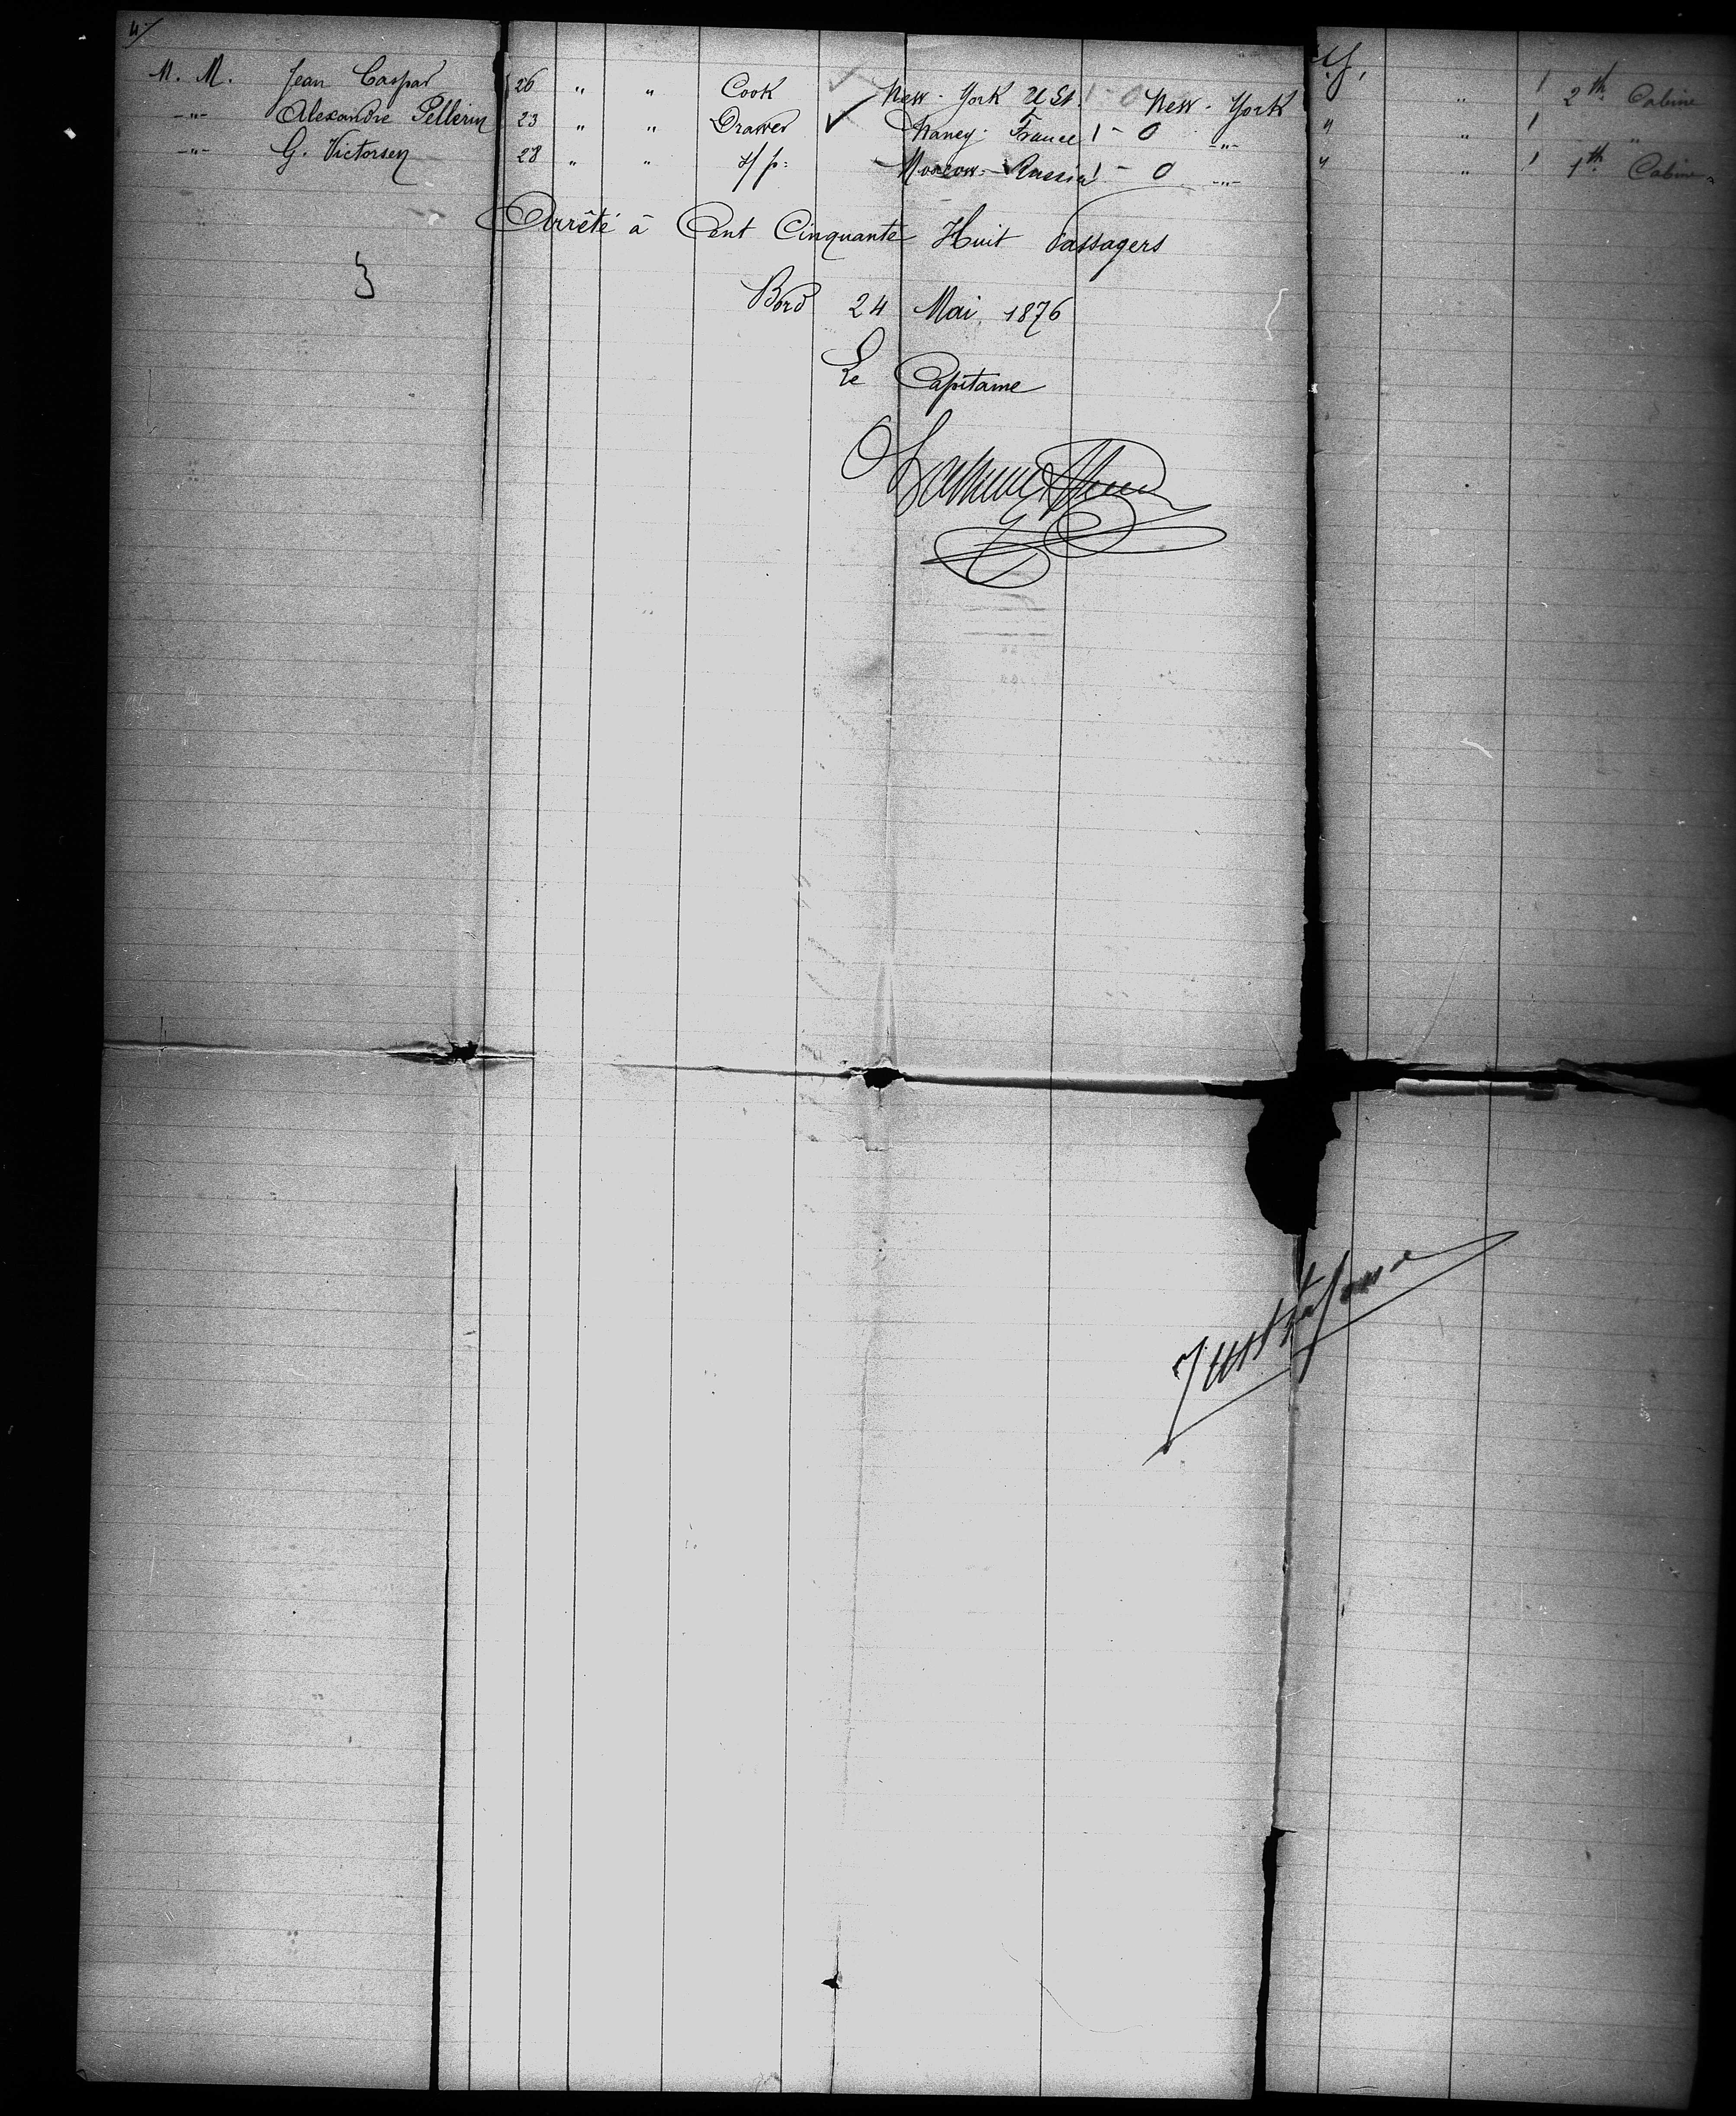 4/
M. M. Jean Caspar 26 " " Cook ✓ New-York U St. 1 - 0 New-York " 1 2th Cabine
-"- Alexandre Pellerin 23 " " Drawer ✓ Nancy. France 1 - 0 -"- " " 1 "
-"- G. Victorsen 28 " " Moscow - Russia 1 - 0 -"- " " 1 1th Cabine
Arrêté à Cent Cinquante Huit Passagers
3
Bord 24 Mai 1876
Le Capitaine